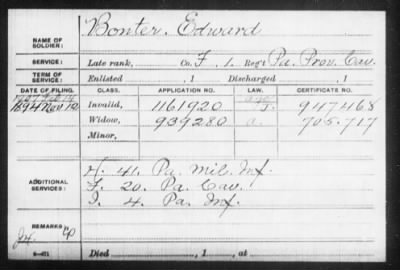 NAME OF SOLDIER: Bonter, Edward
SERVICE: Late rank, Co. F, 1 Reg't Pa. Prov. Cav.
TERM OF SERVICE: Enlisted , 1 Discharged , 1
DATE OF FILING. CLASS. APPLICATION NO. LAW. CERTIFICATE NO.
1907 Feb Invalid, 1161920 947468
1894 Nov 12 Widow, 939280 a. 705.717
Minor,
H. 41. Pa. Mil. Inf.
ADDITIONAL SERVICES: F. 20. Pa. Cav.
I. 4. Pa. Inf
REMARKS:
Died , 1 , at